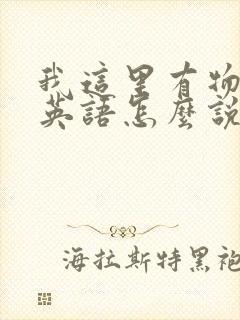 我這里有物
英語怎麼說
海拉斯特黑袍